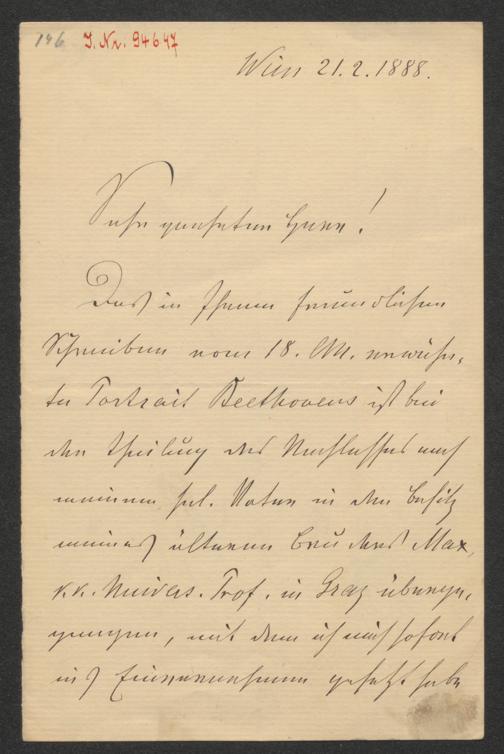 146 I. Nr. 94647
Wien 21.2.1888.
Sehr geehrter Herr!
Das in Ihrem freundlichen
Schreiben vom 18. d. M. erwähn-
te Portrait Beethovens ist bei
der Theilung des Nachlasses nach
meinem sel. Vater in den Besitz
meines älteren Bruders Max,
k. k. Univers. Prof. in Graz überge-
gangen, mit dem ich mich sofort
ins Einvernehmen gesetzt habe